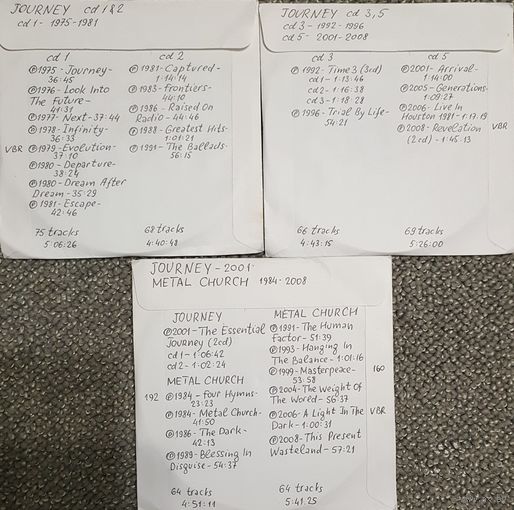 JOURNEY cd 1&2
cd 1 - 1975-1981
cd 1
℗1975 - Journey -
36:45
℗1976 - Look Into
The Future -
41:31
℗1977 - Next - 37:44
℗1978 - Infinity -
36:33
VBR ℗1979 - Evolution -
37:10
℗1980 - Departure -
38:24
℗1980 - Dream After
Dream - 35:29
℗1981 - Escape -
42:46
75 tracks
5:06:26
cd 2
℗1981 - Captured -
1:14:14
℗1983 - Frontiers -
44:10
℗1986 - Raised On
Radio - 44:46
℗1988 - Greatest Hits -
1:01:21
℗1991 - The Ballads -
56:15
68 tracks
4:40:48
JOURNEY cd 3,5
cd 3 - 1992-1996
cd 5 - 2001-2008
cd 3
℗1992 - Time3 (3cd)
cd 1 - 1:13:46
cd 2 - 1:16:38
cd 3 - 1:18:28
℗1996 - Trial By Life -
54:21
66 tracks
4:43:15
cd 5
℗2001 - Arrival -
1:14:00
℗2005 - Generations -
1:09:27
℗2006 - Live In
Houston 1981 - 1:17:19
℗2008 - Revelation VBR
(2cd) - 1:45:13
69 tracks
5:26:00
JOURNEY - 2001
METAL CHURCH 1984-2008
JOURNEY
℗2001 - The Essential
Journey (2cd)
cd 1 - 1:06:42
cd 2 - 1:02:24
METAL CHURCH
192 ℗1984 - Four Hymns -
23:23
℗1984 - Metal Church -
41:50
℗1986 - The Dark -
42:13
℗1989 - Blessing In
Disguise - 54:37
64 tracks
4:51:11
METAL CHURCH
℗1991 - The Human
Factor - 51:39
℗1993 - Hanging In
The Balance - 1:01:16
℗1999 - Masterpeace - 160
53:58
℗2004 - The Weight Of
The World - 56:37
℗2006 - A Light In The VBR
Dark - 1:00:31
℗2008 - This Present
Wasteland - 57:21
64 tracks
5:41:25